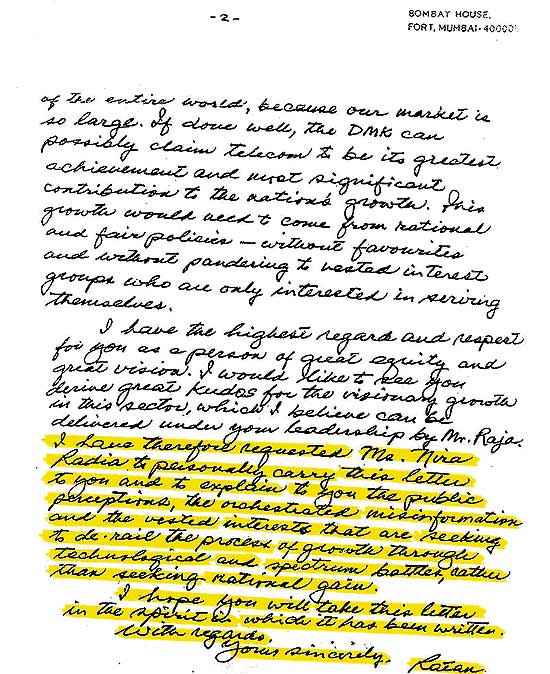 - 2 -
BOMBAY HOUSE,
FORT, MUMBAI-400001
of the entire world, because our market is
so large. If done well, the DMK can
possibly claim telecom to be its greatest
achievement and most significant
contribution to the nation's growth. This
growth would need to come from rational
and fair policies – without favourites
and without pandering to vested interest
groups who are only interested in serving
themselves.
I have the highest regard and respect
for you as a person of great equity and
great vision. I would like to see you
derive great Kudos for the visionary growth
in this sector, which I believe can be
delivered under your leadership by Mr. Raja.
I have therefore requested Ms. Nira
Radia to personally carry this letter
to you and to explain to you the public
perceptions, the orchestrated misinformation
and the vested interests that are seeking
to de-rail the process of growth through
technological and spectrum battles, rather
than seeking national gain.
I hope you will take this letter
in the spirit in which it has been written.
With regards.
Yours sincerely,
Ratan